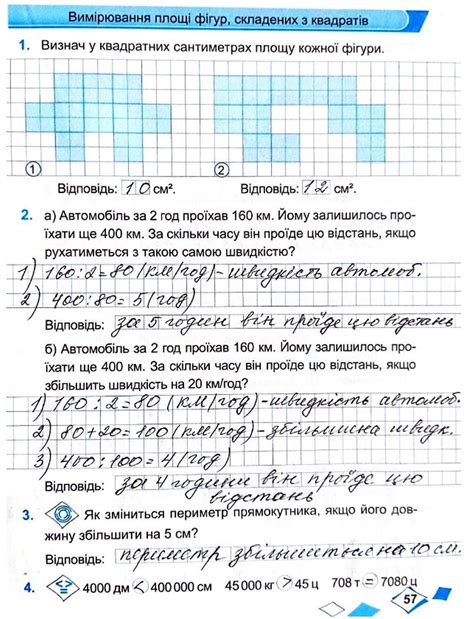 Вимірювання площі фігур, складених з квадратів
1. Визнач у квадратних сантиметрах площу кожної фігури.
1 2
Відповідь: 10 см². Відповідь: 12 см².
2. а) Автомобіль за 2 год проїхав 160 км. Йому залишилось про-
їхати ще 400 км. За скільки часу він проїде цю відстань, якщо
рухатиметься з такою самою швидкістю?
1) 160:2=80 (км/год)-швидкість автомоб.
2) 400:80=5 (год)
Відповідь: за 5 годин він проїде цю відстань
б) Автомобіль за 2 год проїхав 160 км. Йому залишилось про-
їхати ще 400 км. За скільки часу він проїде цю відстань, якщо
збільшить швидкість на 20 км/год?
1) 160:2=80 (км/год)-швидкість автомоб.
2) 80+20=100 (км/год)-збільшена швидк.
3) 400:100=4 (год)
Відповідь: за 4 години він проїде цю
відстань
3. Як зміниться периметр прямокутника, якщо його дов-
жину збільшити на 5 см?
Відповідь: периметр збільшиться на 10 см.
4. <=> 4000 дм < 400 000 см 45 000 кг > 45 ц 708 т = 7080 ц
57